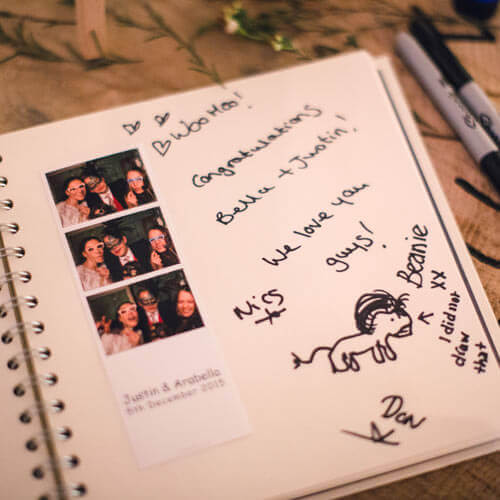 WooHoo!
Congratulations
Bella + Justin!
We love you
guys!
Beanie
xx
I did not
draw
that
Dan
Justin & Arabella
5th December 2015